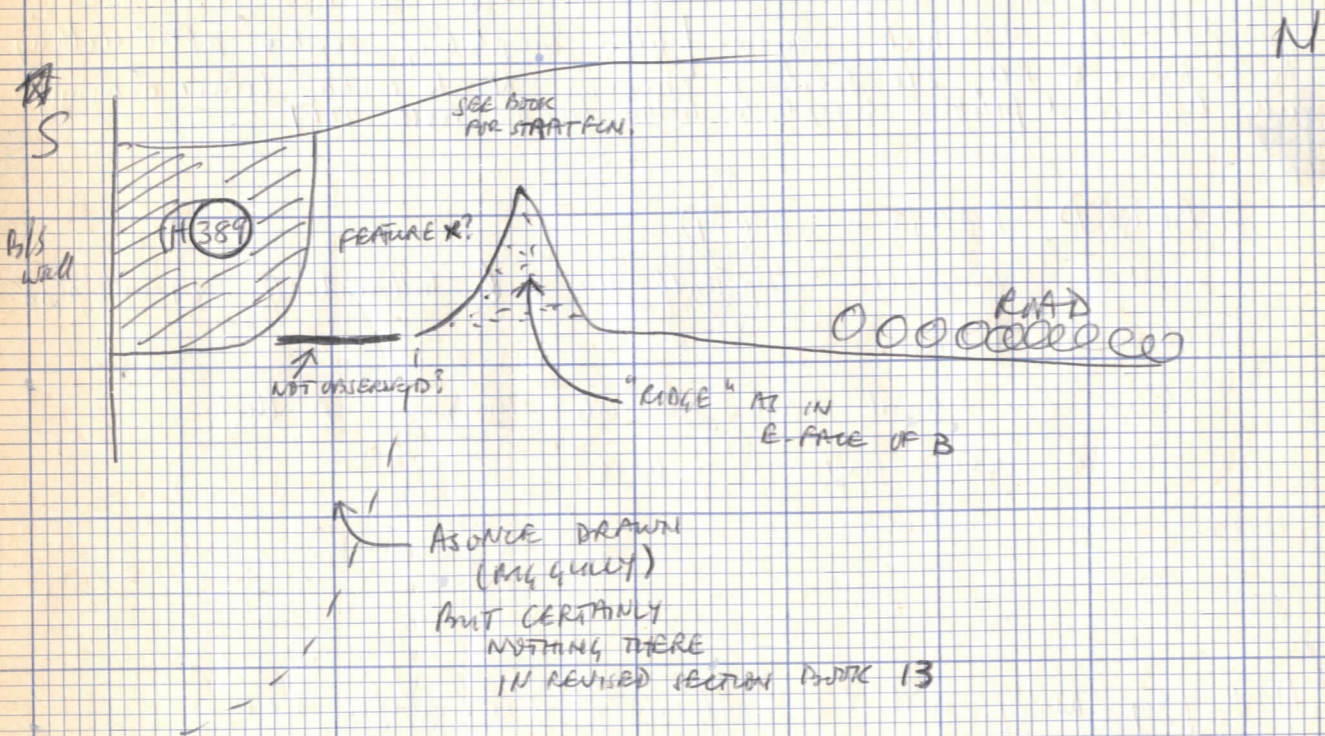 N
S
SEE BOOK
FOR STRAT FCN.
B/S
wall
(H 389
FEATURE X?
ROAD
NOT OBSERVED?
"RIDGE" AS IN
E. FACE OF B
AS ONCE DRAWN
(BIG GULLY)
BUT CERTAINLY
NOTHING THERE
IN REVISED SECTION BOOK 13